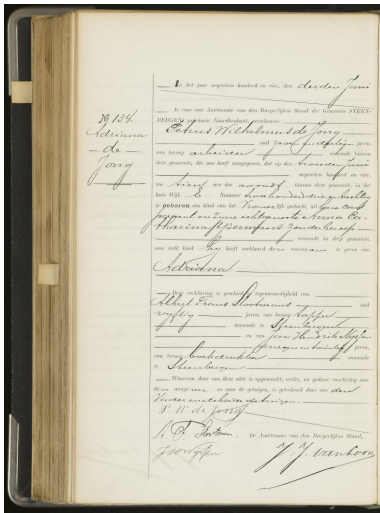 In het jaar negentien honderd en vier, den derden Juni
is voor ons Ambtenaar van den Burgerlijken Stand der Gemeente STEEN-
BERGEN, provincie Noordbrabant, verschenen:
No 134.
Adriana
de
Jong
Petrus Wilhelmus de Jong
oud jaren,
van beroep arbeider wonende binnen
deze gemeente, die ons heeft aangegeven, dat op den tweeden Juni
negentien honderd en vier,
ure des avonds binnen deze gemeente, in het
huis Wijk E Nummer
is geboren een kind van het Vrouwelijk geslacht, uit
en zijne echtgenoote Anna Ca-
tharina zonder beroep
wonende in deze gemeente,
aan welk kind hij heeft verklaard den voornaam te geven van
Adriana
Deze verklaring is geschied in tegenwoordigheid van
Albert Frans Slootmans oud
vijftig jaren, van beroep
wonende te Steenbergen
en van Jan Hendrik
jaren,
van beroep wonende
te Steenbergen
Waarvan door ons deze akte is opgemaakt, welke, na gedane voorlezing aan
den aangever en aan de getuigen, is geteekend door ons den
Vader en de beide getuigen.
P W de Jong
A. F. Slootmans De Ambtenaar van den Burgerlijken Stand,
J. J. van Loon